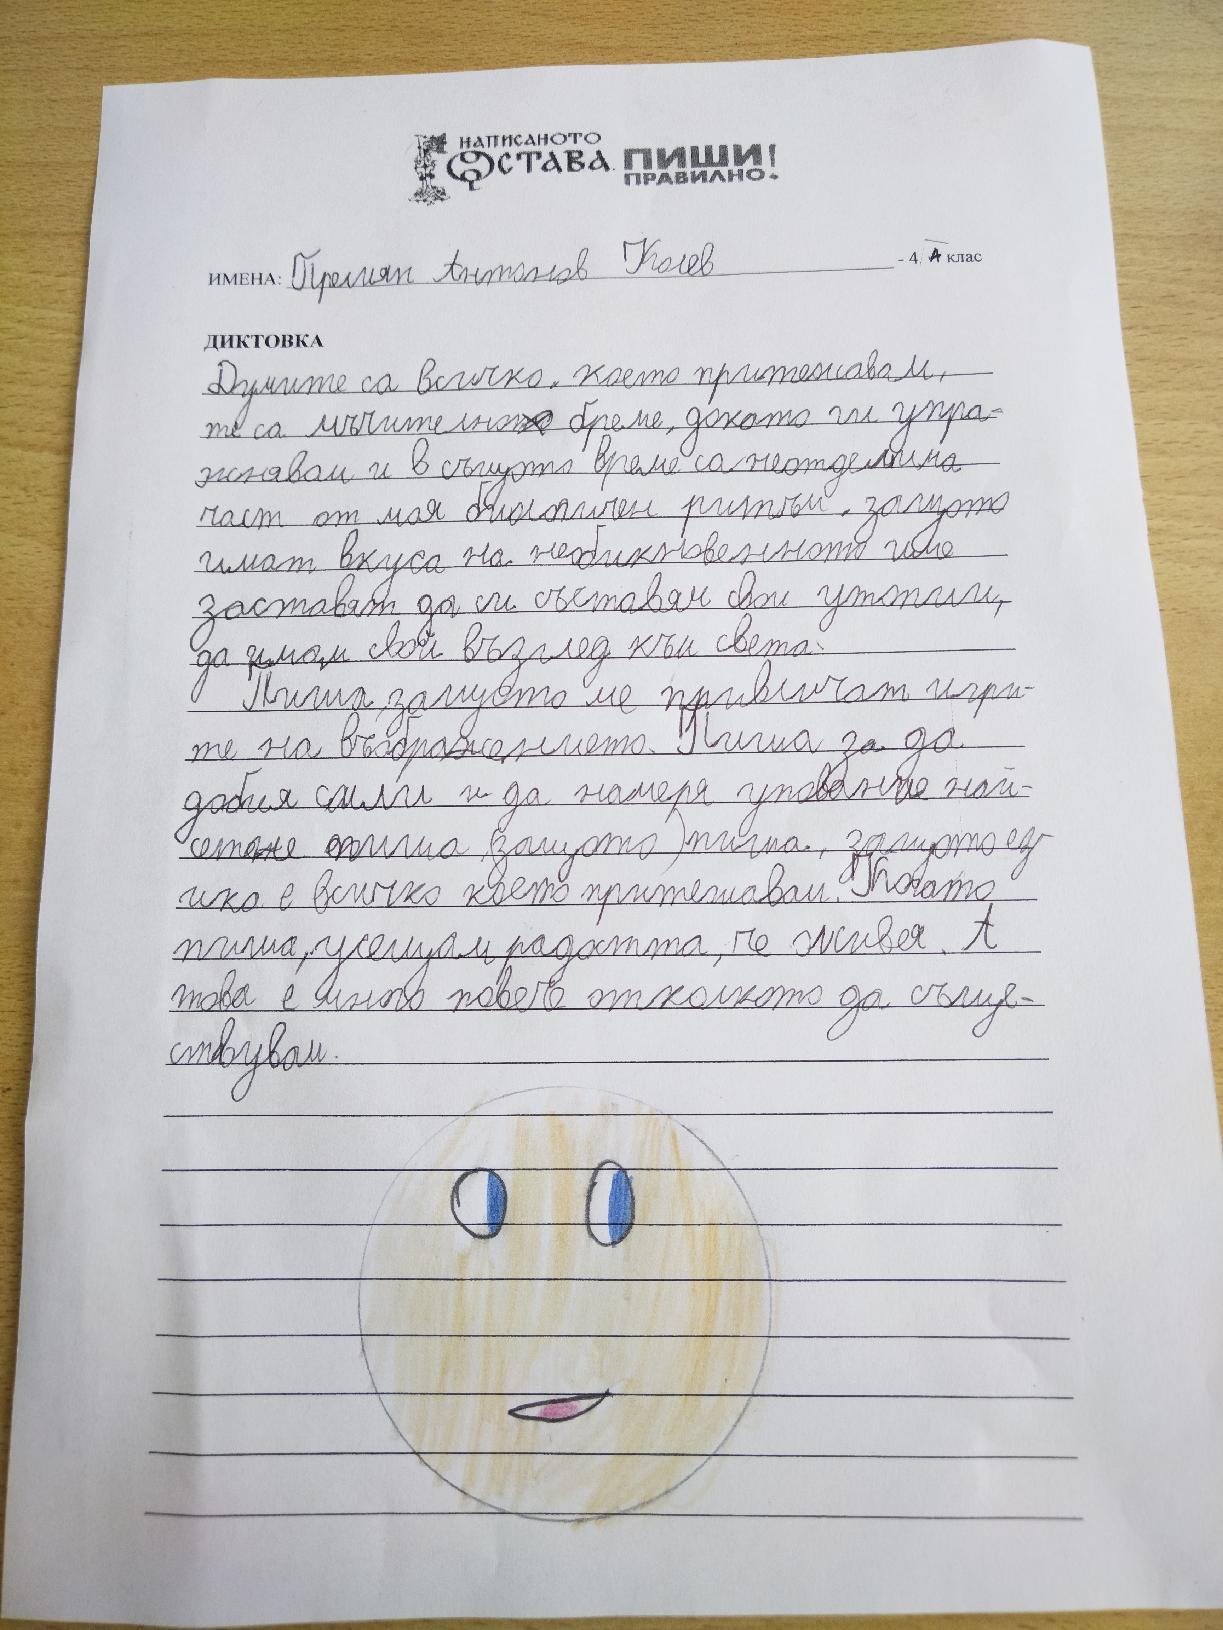 НАПИСАНОТО
ОСТАВА ПИШИ!
ПРАВИЛНО.
ИМЕНА: Премиян Антонов Колев - 4 А клас
ДИКТОВКА
Думите са всичко, което притежавам,
те са мъчително бреме, докато ги упра-
жнявам и в същото време са неотделима
част от моя биологичен ритъм, защото
имат вкуса на необикновенното и ме
заставят да си съставям свои утопии,
да имам свой възглед към света.
Пиша, защото ме привличат игри-
те на въображението. Пиша за да
добия сили и да намеря упование най-
сетне пиша (защото) пиша, защото ез-
ика е всичко което притежавам. Когато
пиша, усещам радостта, че живея. А
това е много повече отколкото да съще-
ствувам.